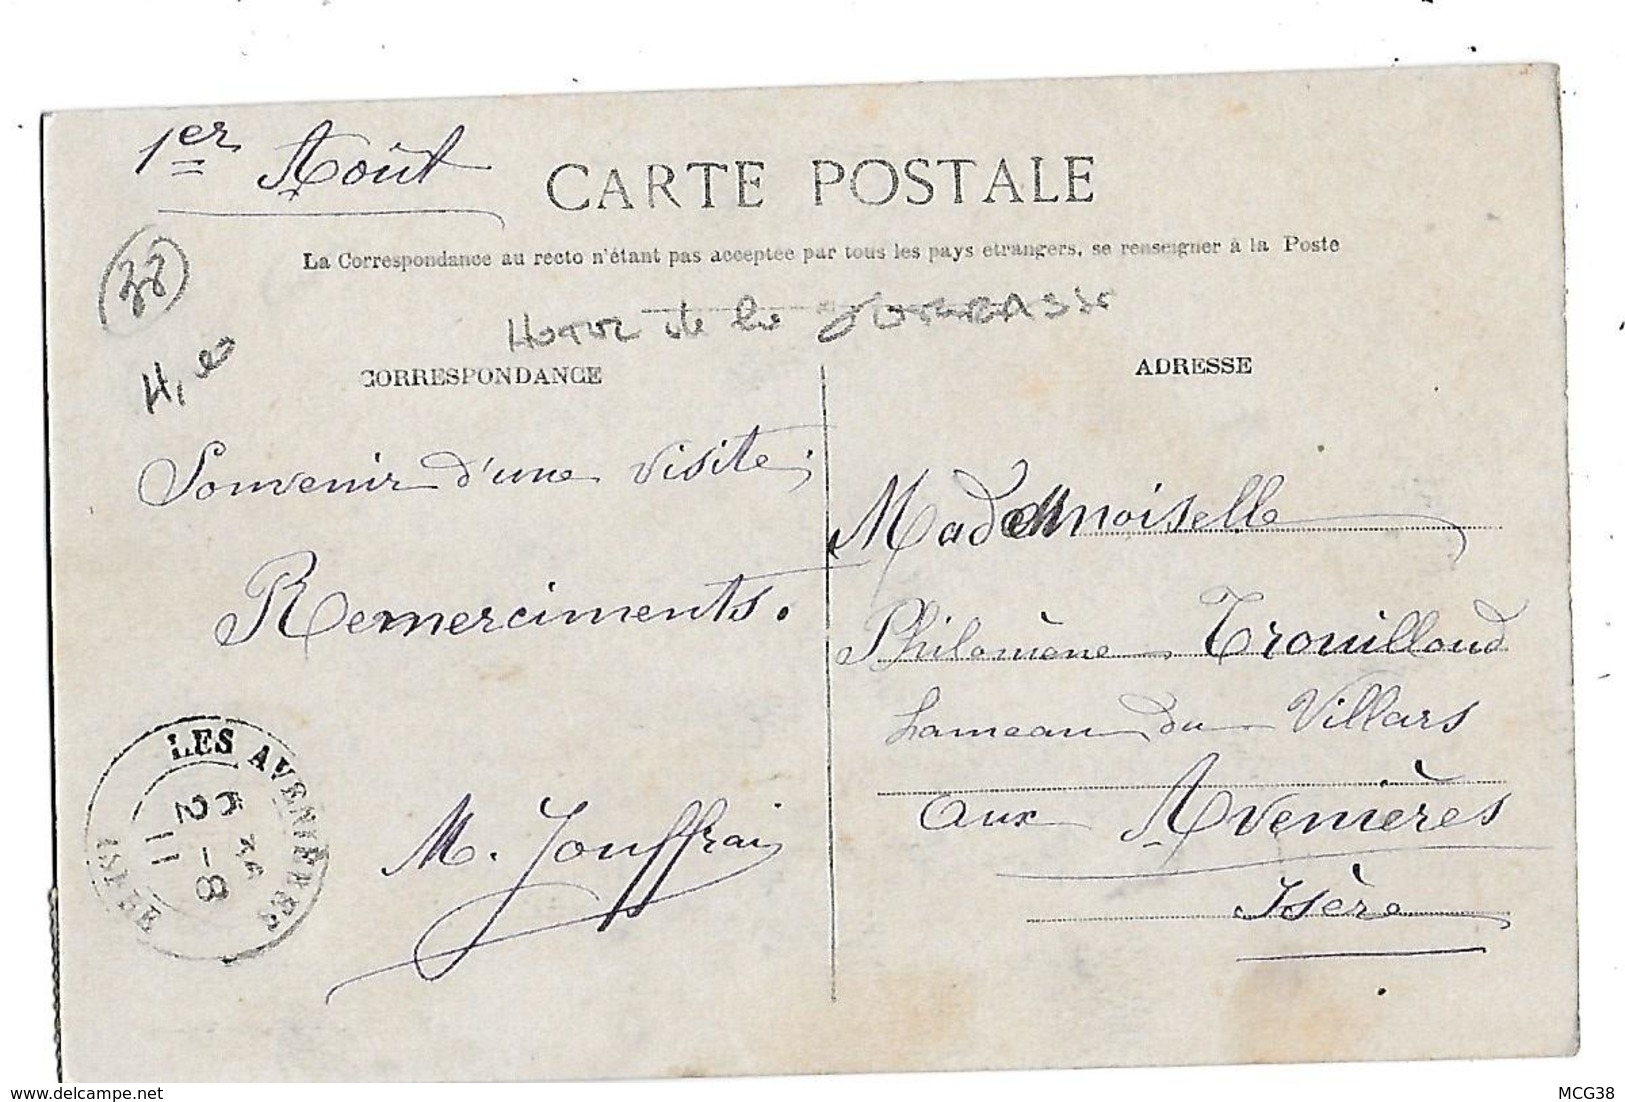 1er Août
CARTE POSTALE
La Correspondance au recto n'étant pas acceptée par tous les pays etrangers, se renseigner à la Poste
38
de la
CORRESPONDANCE
ADRESSE
Souvenir d'une visite.
Remerciments.
M. Jouffrai
Mademoiselle
Philomène Trouilloud
hameau du Villars
aux Avenières
Isère
LES AVENIERES
2 -8
11
ISERE
www.delcampe.net
MCG38